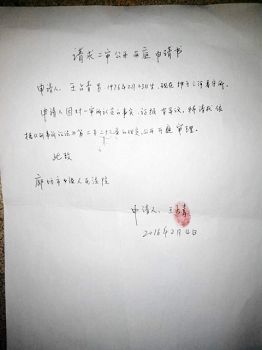 请求二审公开开庭申请书
申请人:王 青 男 1976年2月 生,现在押于三河看守所。
申请人因对一审所认定的事实、证据有异议,特请求依
据《刑事诉讼法》第二百二十三条的规定,公开开庭审理。
此致
廊坊市中级人民法院
申请人:王 青
2016年2月 日